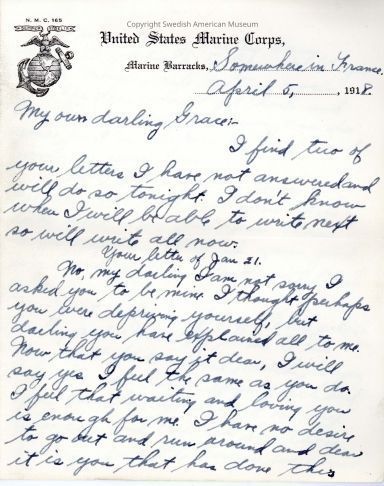 Copyright Swedish American Museum
N. M. C. 165
United States Marine Corps,
Marine Barracks, Somewhere in France.
April 5, , 1918.
My own darling Grace:-
I find two of
your letters I have not answered and
will do so tonight. I don't know
when I will be able to write next
so will write all now.
Your letter of Jan 21.
No, my darling I am not sorry I
asked you to be mine. I thought perhaps
you were depriving yourself, but
darling you have explained all to me.
Now that you say it dear, I will
say yes I feel the same as you do
I feel that waiting and loving you
is enough for me. I have no desire
to go out and run around and dear
it is you that has done this